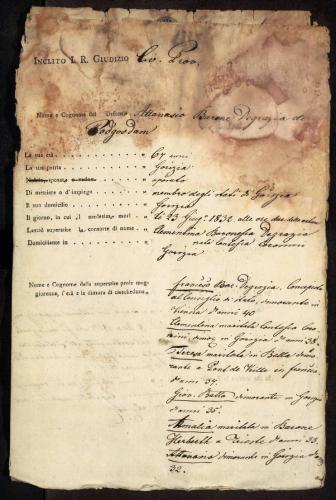 INCLITO I. R. GIUDIZIO Civ. Prov.
Nome e Cognome del Defonto Attanasio Barone Degrazia de
Podgosdam
La sua età 67 anni
La sua patria Gorizia
Nubile, sposato o vedovo sposato
Di mestiere o d'impiego membro degli stati di Gorizia
Il suo domicilio Gorizia
Il giorno, in cui 'l medesimo morì li 23 Giug.º 1832. alle ore due della
Lasciò superstite la consorte di nome Clementina Baronessa Degrazia
Domiciliante in nata Contessa Coronini
Gorizia
Nome e Cognome della superstite prole mag-
giorenne, l'età e la dimora di ciascheduno
Francesco Bar. Degrazia, Concepista
al Consiglio di Stato, dimorante in
Vienna d'anni 40
Clementina maritata Contessa Coro-
nini, dimor. in Gorizia d'anni 38.
Teresa maritata in Balta dimo-
rante a Pont de Vielle in francia
d'anni 37.
Giov. Batta dimorante in Gorizia
d'anni 35.
Amalia maritata in Barone
Herberth a Trieste d'anni 33.
Attanasio dimorante in Gorizia d'a
32.